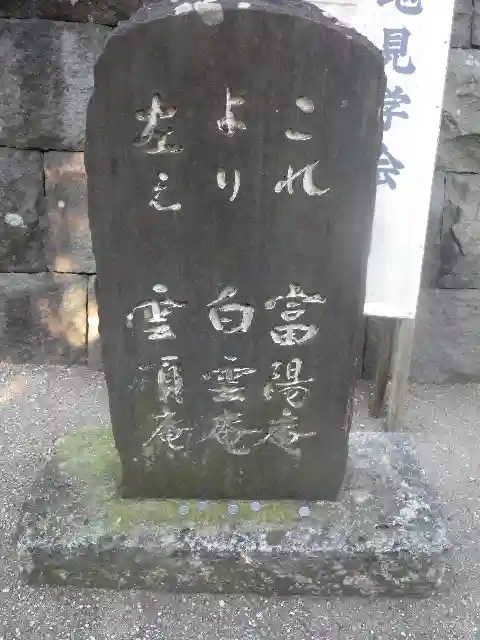 これ 富陽庵
より 白雲庵
左え 雲頂庵
見学会